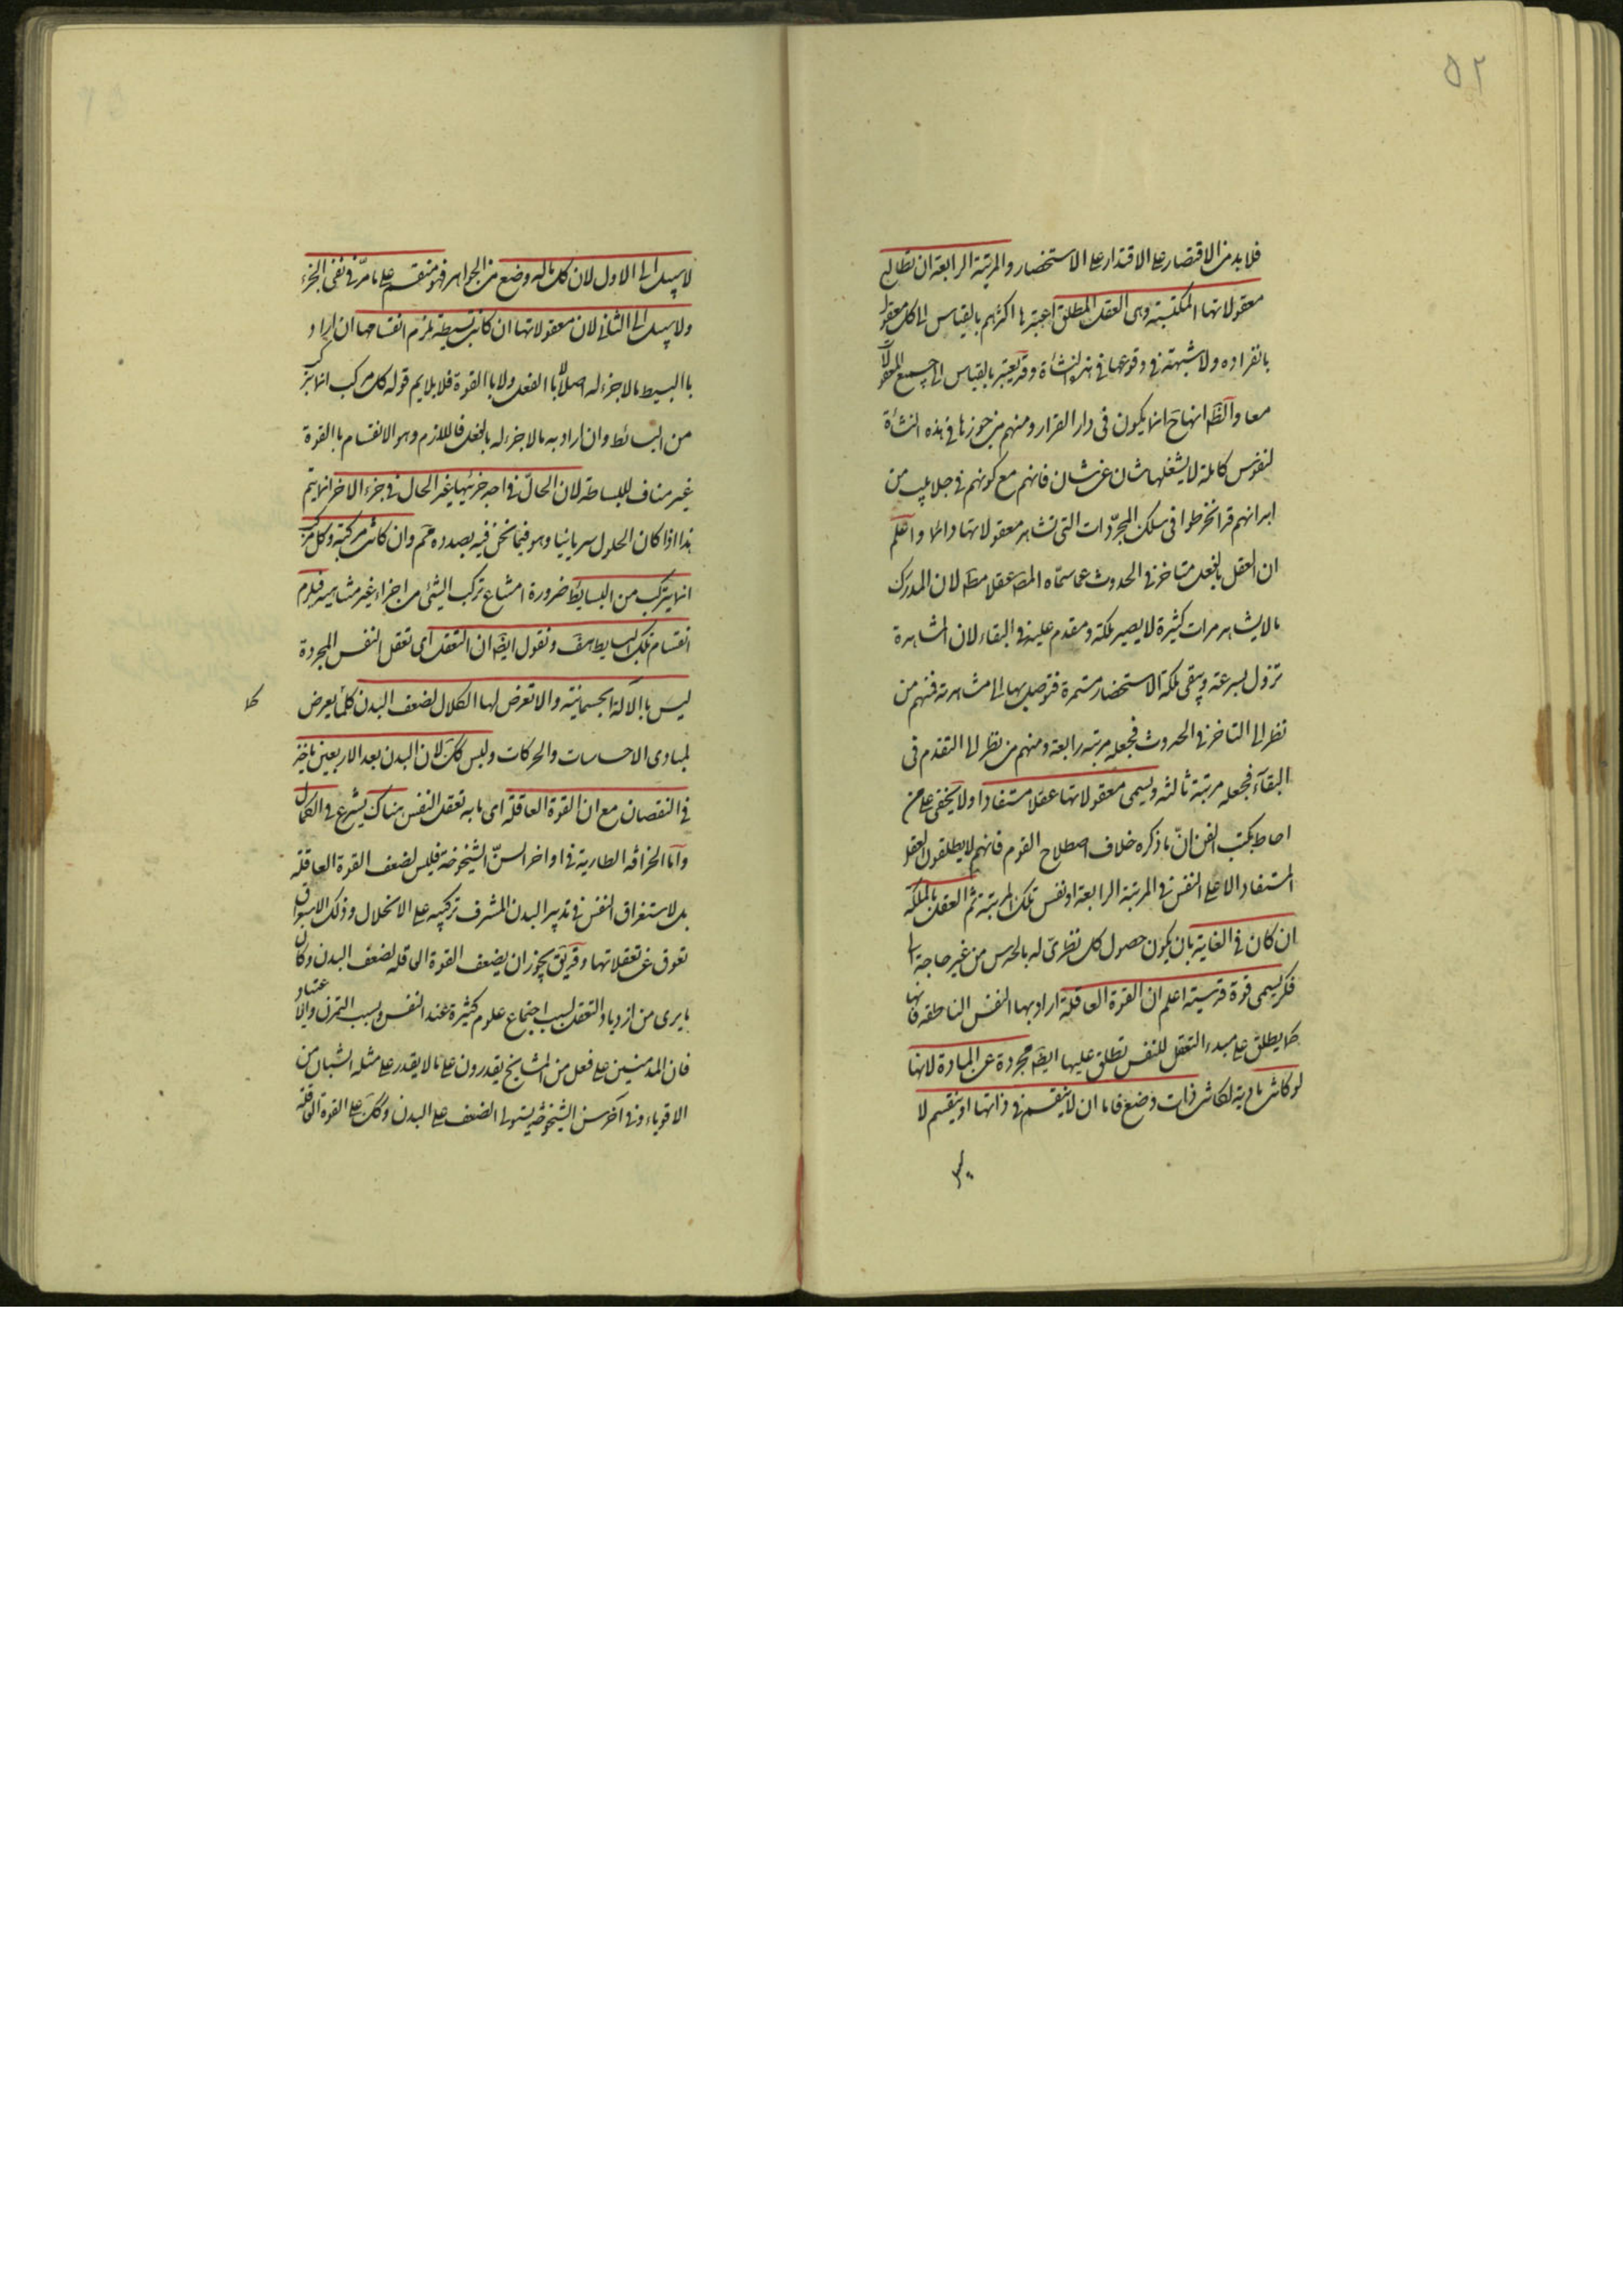 ٥٢
فلا بد من الاقتصار على الاقتدار على الاستحضار والمرتبة الرابعة ان تطالع
معقولاتها المكتسبة وهى العقل المطلق اعتبرها اكثرهم بالقياس الى كل معقول
بانفراده ولا شبهة فى وقوعها فى هذه النشأة وقد يعتبر بالقياس الى جميع المعقولات
معا والظ انها ح انما يكون فى دار القرار ومنهم من جوزها فى هذه النشأة
لنفوس كاملة لا يشغلها شان عن شان فانهم مع كونهم فى جلابيب من
ابدانهم قد انخرطوا فى سلك المجرّدات التى تشاهد معقولاتها دائما واعلم
ان العقل بالفعل متاخر فى الحدوث عما سمّاه المص عقلا مط لان المدرك
ما لا يشاهد مرات كثيرة لا يصير ملكة ومقدم عليه فى البقاء لان المشاهدة
تزول بسرعة ويبقى ملكة الاستحضار مستمرة فتوصل بها الى مشاهدته فمنهم من
نظر الى التاخر فى الحدوث فجعله مرتبة رابعة ومنهم من نظر الى التقدم فى
البقآء فجعله مرتبة ثالثة ويسمى معقولاتها عقلا مستفادا ولا يخفى على من
احاط بكتب الفن انّ ما ذكره خلاف اصطلاح القوم فانهم لا يطلقون العقل
المستفاد الا على النفس فى المرتبة الرابعة او نفس تلك المرتبة ثم العقل بالملكة
ان كان فى الغاية بان يكون حصول كل نظرى له بالحدس من غير حاجة الى
فكر يسمى قوة قدسية اعلم ان القوة العاقلة اراد بها النفس الناطقة فانها
كما يطلق على مبدء التعقل للنفس تطلق عليها ايضا مجردة عن المادة لانها
لو كانت مادية لكانت ذات وضع فاما ان لا ينقسم فى ذاتها او ينقسم لا
لا سبيل الى الاول لان كل ما له وضع من الجواهر فهو منقسم على ما مرّ فى نفى الجزء
ولا سبيل الى الثانى لان معقولاتها ان كانت بسيطة يلزم انقسامها ان اراد
باالبسيط ما لا جزء له اصلاً باالفعل ولا باالقوة فلا يلايم قوله كل مركب انما يتركب
من البسائط وان اراد به ما لا جزء له بالفعل فاللازم وهو الانقسام باالقوة
غير مناف للبساطة لان الحالّ فى احد جزئيها غير الحال فى جزء الاخر انما يتم
هذا اذا كان الحلول سريانيا وهو فيما نحن فيه بصدده مم وان كانت مركبة وكل مركب
انما يتركب من البسايط ضرورة امتناع تركب الشئ من اجزاء غير متناهية فيلزم
انقسام تلك البسايط هف ونقول ايضا ان التعقل اى تعقل النفس المجردة
ليس باالآلة الجسمانية والا تعرض لها الكلال لضعف البدن كلما يعرض
لمبادى الاحساسات والحركات وليس كك لان البدن بعد الاربعين ياخذ
فى النقصان مع ان القوة العاقلة اى ما به تعقل النفس هناك يشرع فى الكمال
وآما الخرافة الطارية فى اواخر السنّ الشيخوخة فليس لضعف القوة العاقلة
بل لاستغراق النفس فى تدبير البدن المشرف تركيبه على الانحلال وذلك الاستغراق
تعوق عن تعقلاتها وقد يق يجوز ان يضعف القوة العاقلة لضعف البدن وكان
ما يرى من ازدياد التعقل بسبب اجتماع علوم كثيرة عند النفس وبسبب التمرن والاعتياد
فان المدمنين على فعل من المشايخ يقدرون على ما لا يقدر على مثله الشبان من
الاقوياء وفى آخر سن الشيخوخة يستولى الضعف على البدن وكك على القوة العاقلة